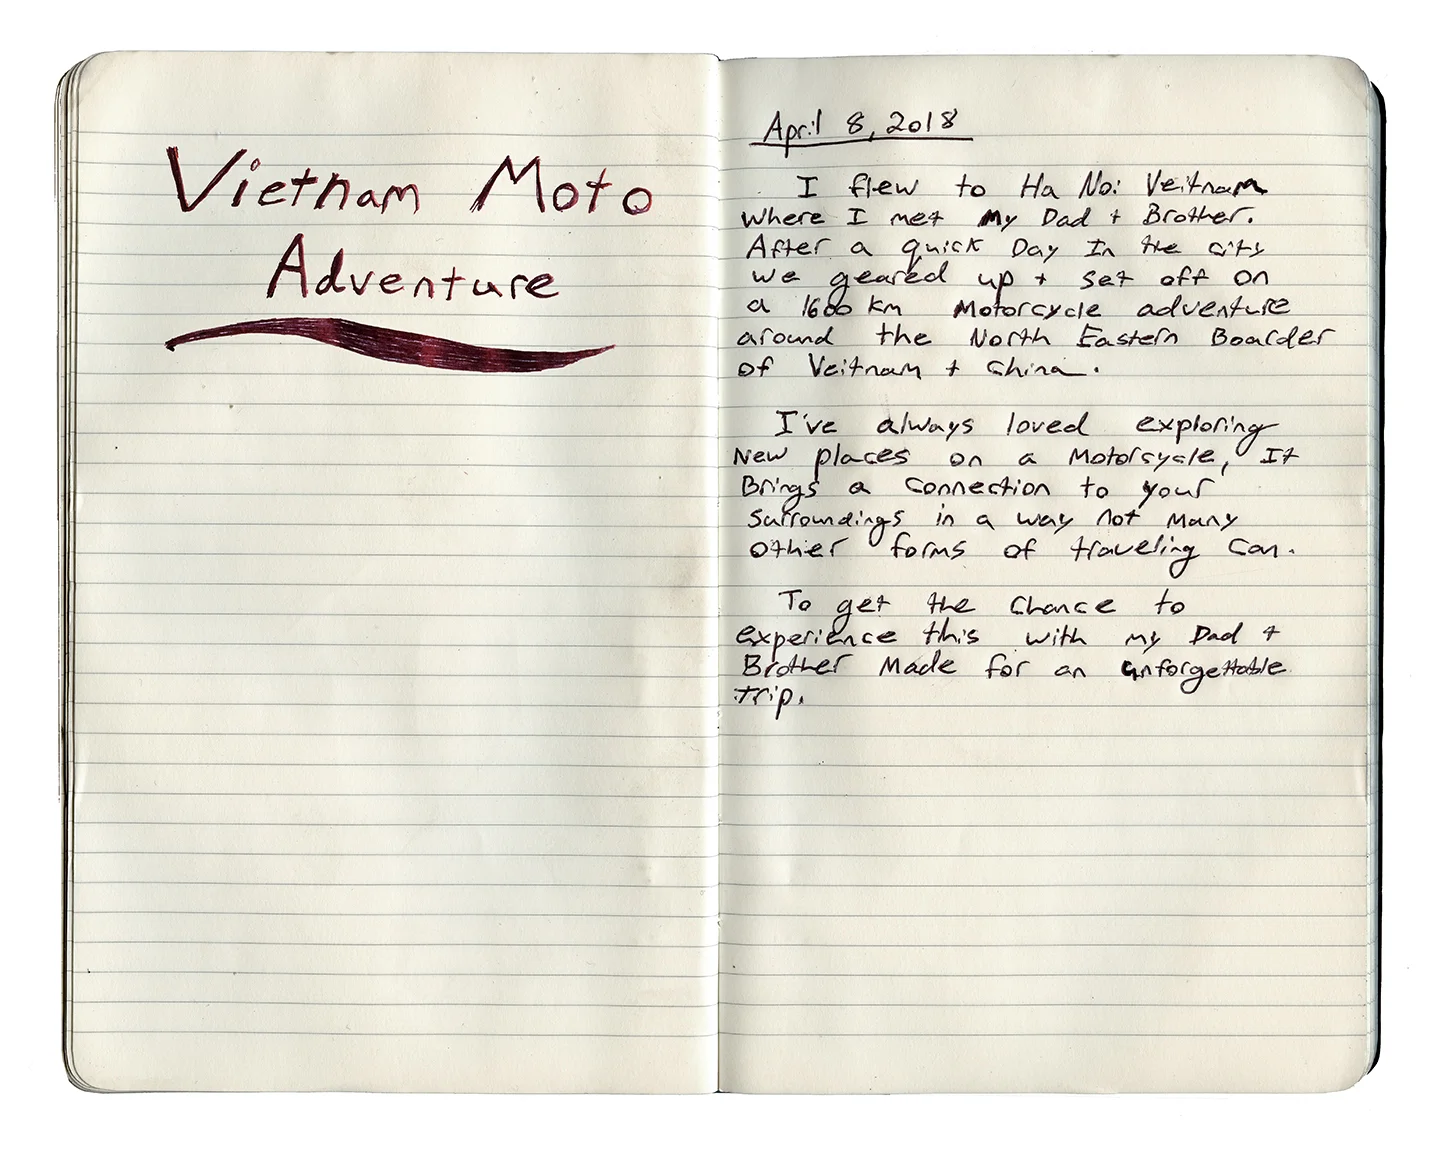 Vietnam Moto
Adventure
April 8, 2018
I flew to Ha Noi Veitnam
where I met My Dad + Brother.
After a quick Day In the city
we geared up + set off on
a 1600 km Motorcycle adventure
around the North Eastern Boarder
of Veitnam + China.
I've always loved exploring
New places on a Motorcycle, It
Brings a connection to your
surroundings in a way not many
other forms of traveling can.
To get the chance to
experience this with my Dad +
Brother Made for an unforgettable
trip.